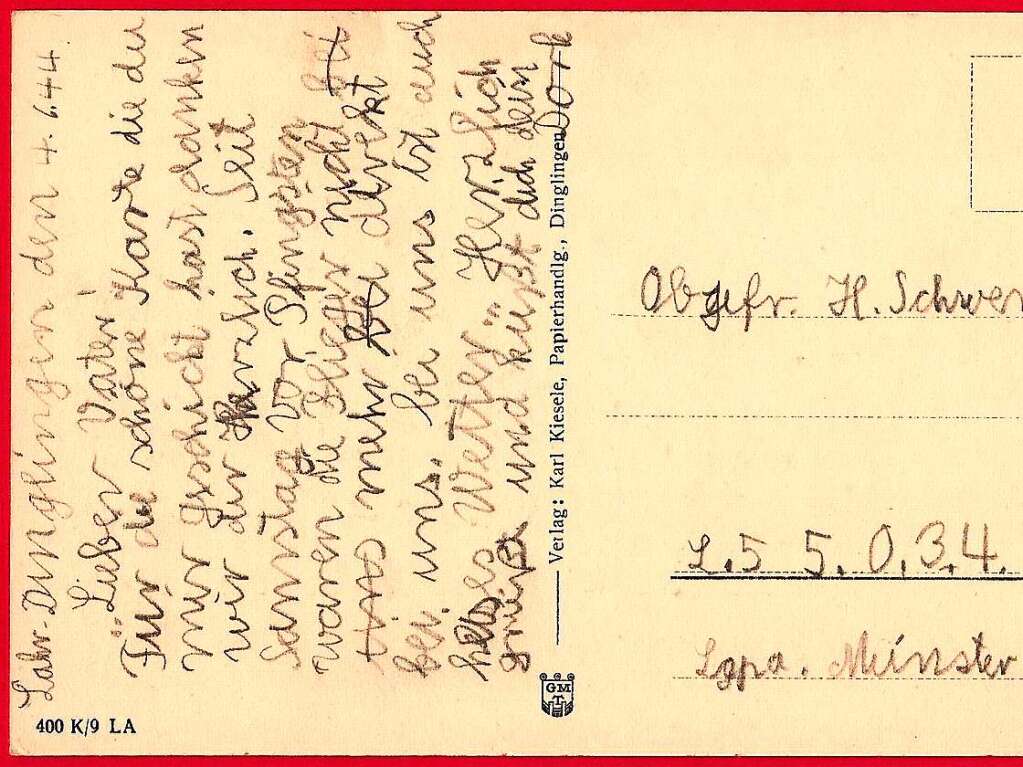 Lahr-Dinglingen den 4.6.44.
Lieber Vater!
Für die schöne Karte die du
mir geschickt hast danken
wir dir herzlich. Seit
Samstag vor Pfingsten
waren die Flieger nicht bei
uns mehr bei direkt
bei uns. bei uns ist auch
helles Wetter. Herzlich
grüßt und küßt dich dein
Verlag: Karl Kiesele, Papierhandlg., Dinglingen
GMT
400 K/9 LA
Obgefr. H. Schwer
L.5 5.0.3.4.
Lgpa. Münster